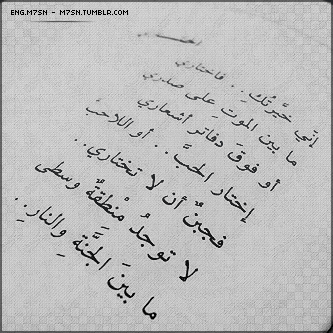 ENG.M7SN - M7SN.TUMBLR.COM
إنّي خيَّرتُكِ .. فاختاري
ما بين الموتِ على صدري
أو فوقَ دفاترِ أشعاري
إختاري الحبَّ .. أو اللاحبَّ
فجبنٌ أن لا تختاري ..
لا توجدُ مِنْطقةٌ وسطى
ما بينَ الجنَّةِ والنارِ ..